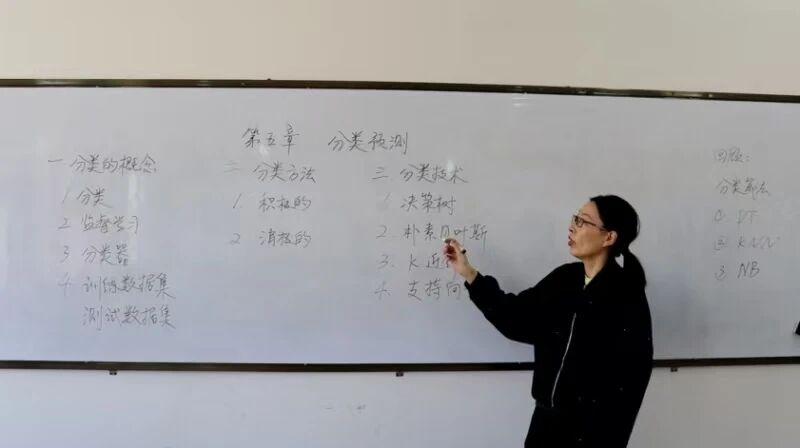 第五章 分类预测
一 分类的概念
1 分类
2 监督学习
3 分类器
4 训练数据集
测试数据集
二 分类方法
1. 积极的
2 消极的
三 分类技术
1 决策树
2. 朴素贝叶斯
3. K近
4. 支持向
回顾:
分类算法
① DT
② KNN
③ NB